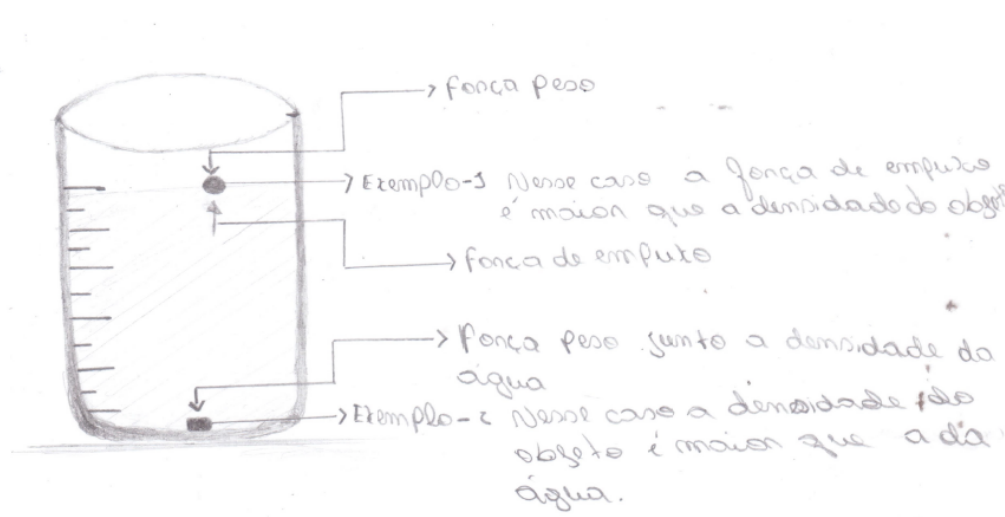 força peso
Exemplo-1 Nesse caso a força de empuxo
é maior que a densidade do objeto
força de empuxo
força peso junto a densidade da
água
Exemplo-2 Nesse caso a densidade do
objeto é maior que a da
água.